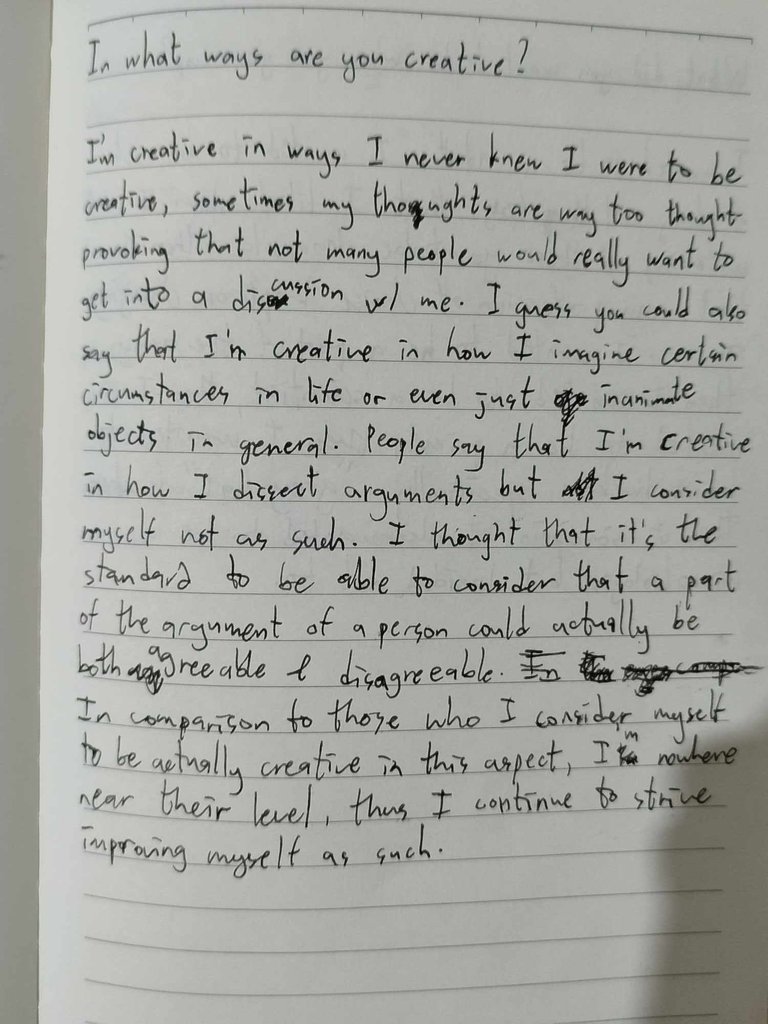 In what ways are you creative?
I'm creative in ways I never knew I were to be
creative, sometimes my thoughts are way too thought-
provoking that not many people would really want to
get into a discussion w/ me. I guess you could also
say that I'm creative in how I imagine certain
circumstances in life or even just inanimate
objects in general. People say that I'm creative
in how I dissect arguments but I consider
myself not as such. I thought that it's the
standard to be able to consider that a part
of the argument of a person could actually be
both agreeable & disagreeable.
In comparison to those who I consider myself
to be actually creative in this aspect, I'm nowhere
near their level, thus I continue to strive
improving myself as such.